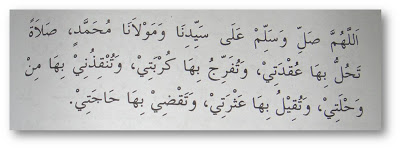 اَللّٰهُمَّ صَلِّ وَسَلِّمْ عَلَى سَيِّدِنَا وَمَوْلَانَا مُحَمَّدٍ، صَلَاةً
تَحُلُّ بِهَا عُقْدَتِيْ، وَتُفَرِّجُ بِهَا كُرْبَتِيْ، وَتُنْقِذُنِيْ بِهَا مِنْ
وَحْلَتِيْ، وَتُقِيْلُ بِهَا عَثْرَتِيْ، وَتَقْضِيْ بِهَا حَاجَتِيْ.